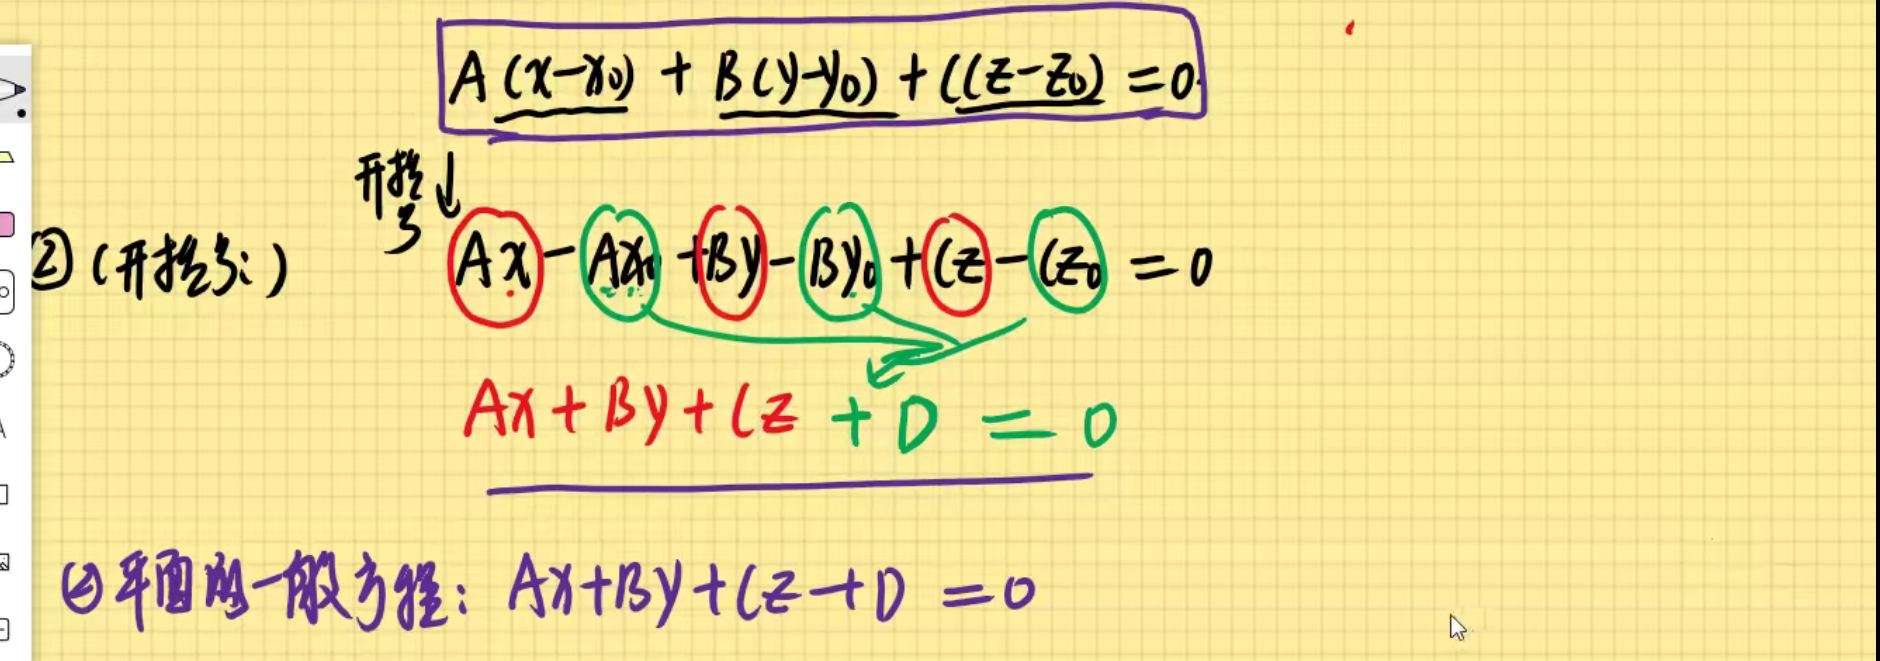 A(x-x₀) + B(y-y₀) + C(z-z₀) = 0
开括号
② (开括号:) Ax - Ax₀ + By - By₀ + Cz - Cz₀ = 0
Ax + By + Cz + D = 0
② 平面的一般方程: Ax+By+Cz+D = 0